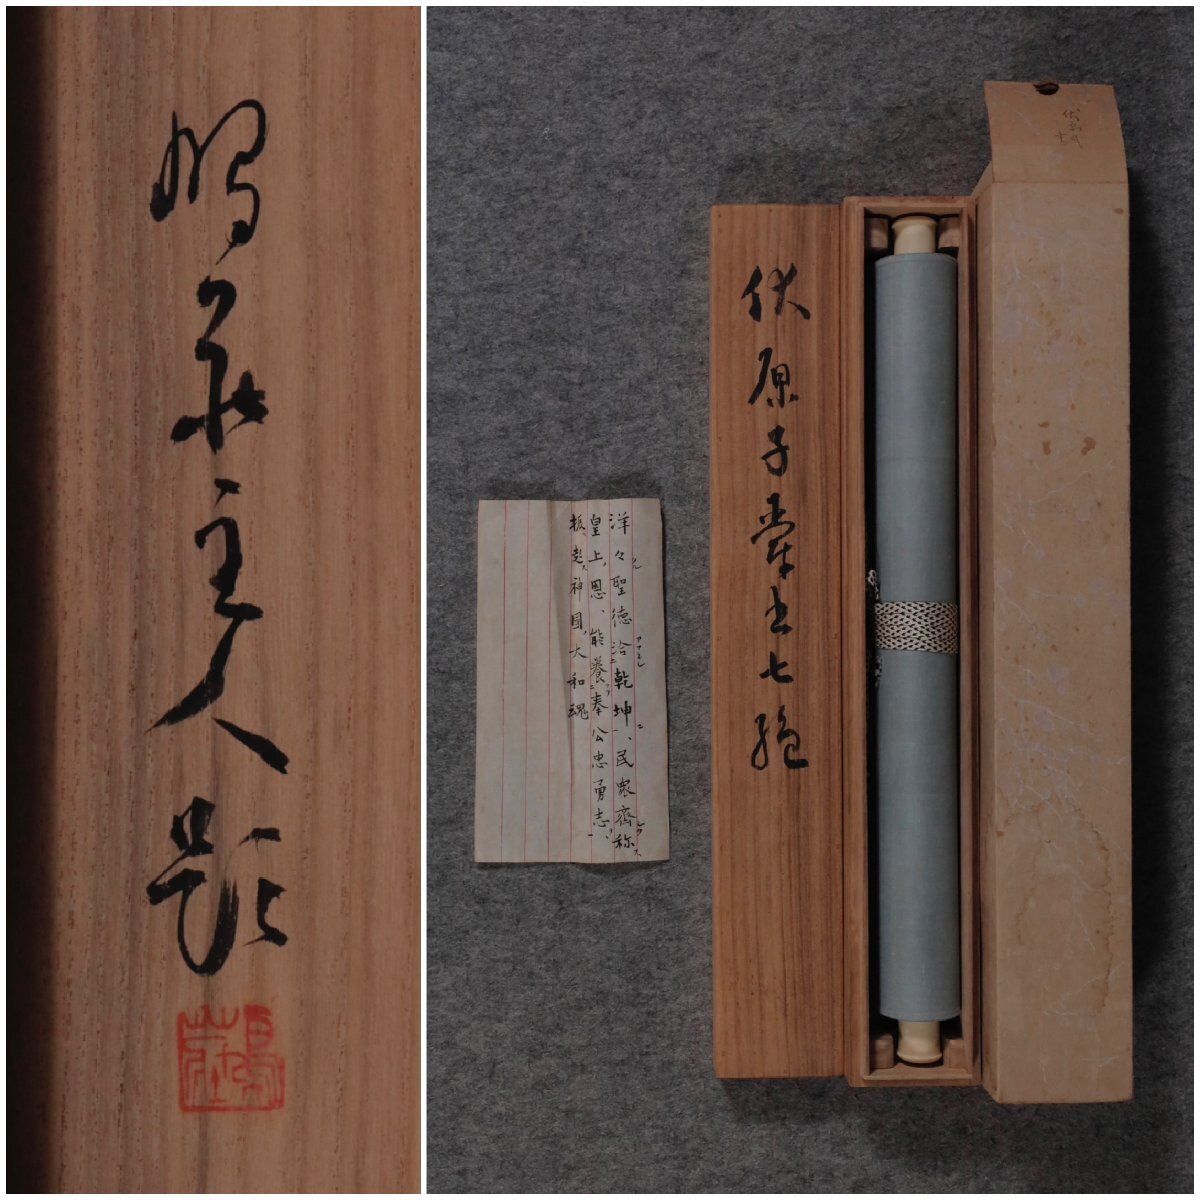 主人題
伏原子爵書七絶
洋々聖徳洽乾坤、民衆齊称
皇上恩、能養奉公忠勇志、
振起神國大和魂